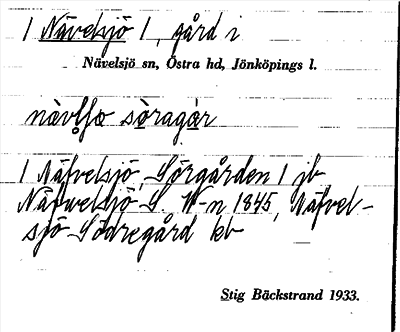 / Nävelsjö /, gård i
Nävelsjö sn, Östra hd, Jönköpings l.
nàvlfæ sòragàr
/ Näfvelsjö, Sörgården / jb
Näfwelsjö S W-n 1845, Näfvel-
sjö Södregård kb
Stig Bäckstrand 1933.